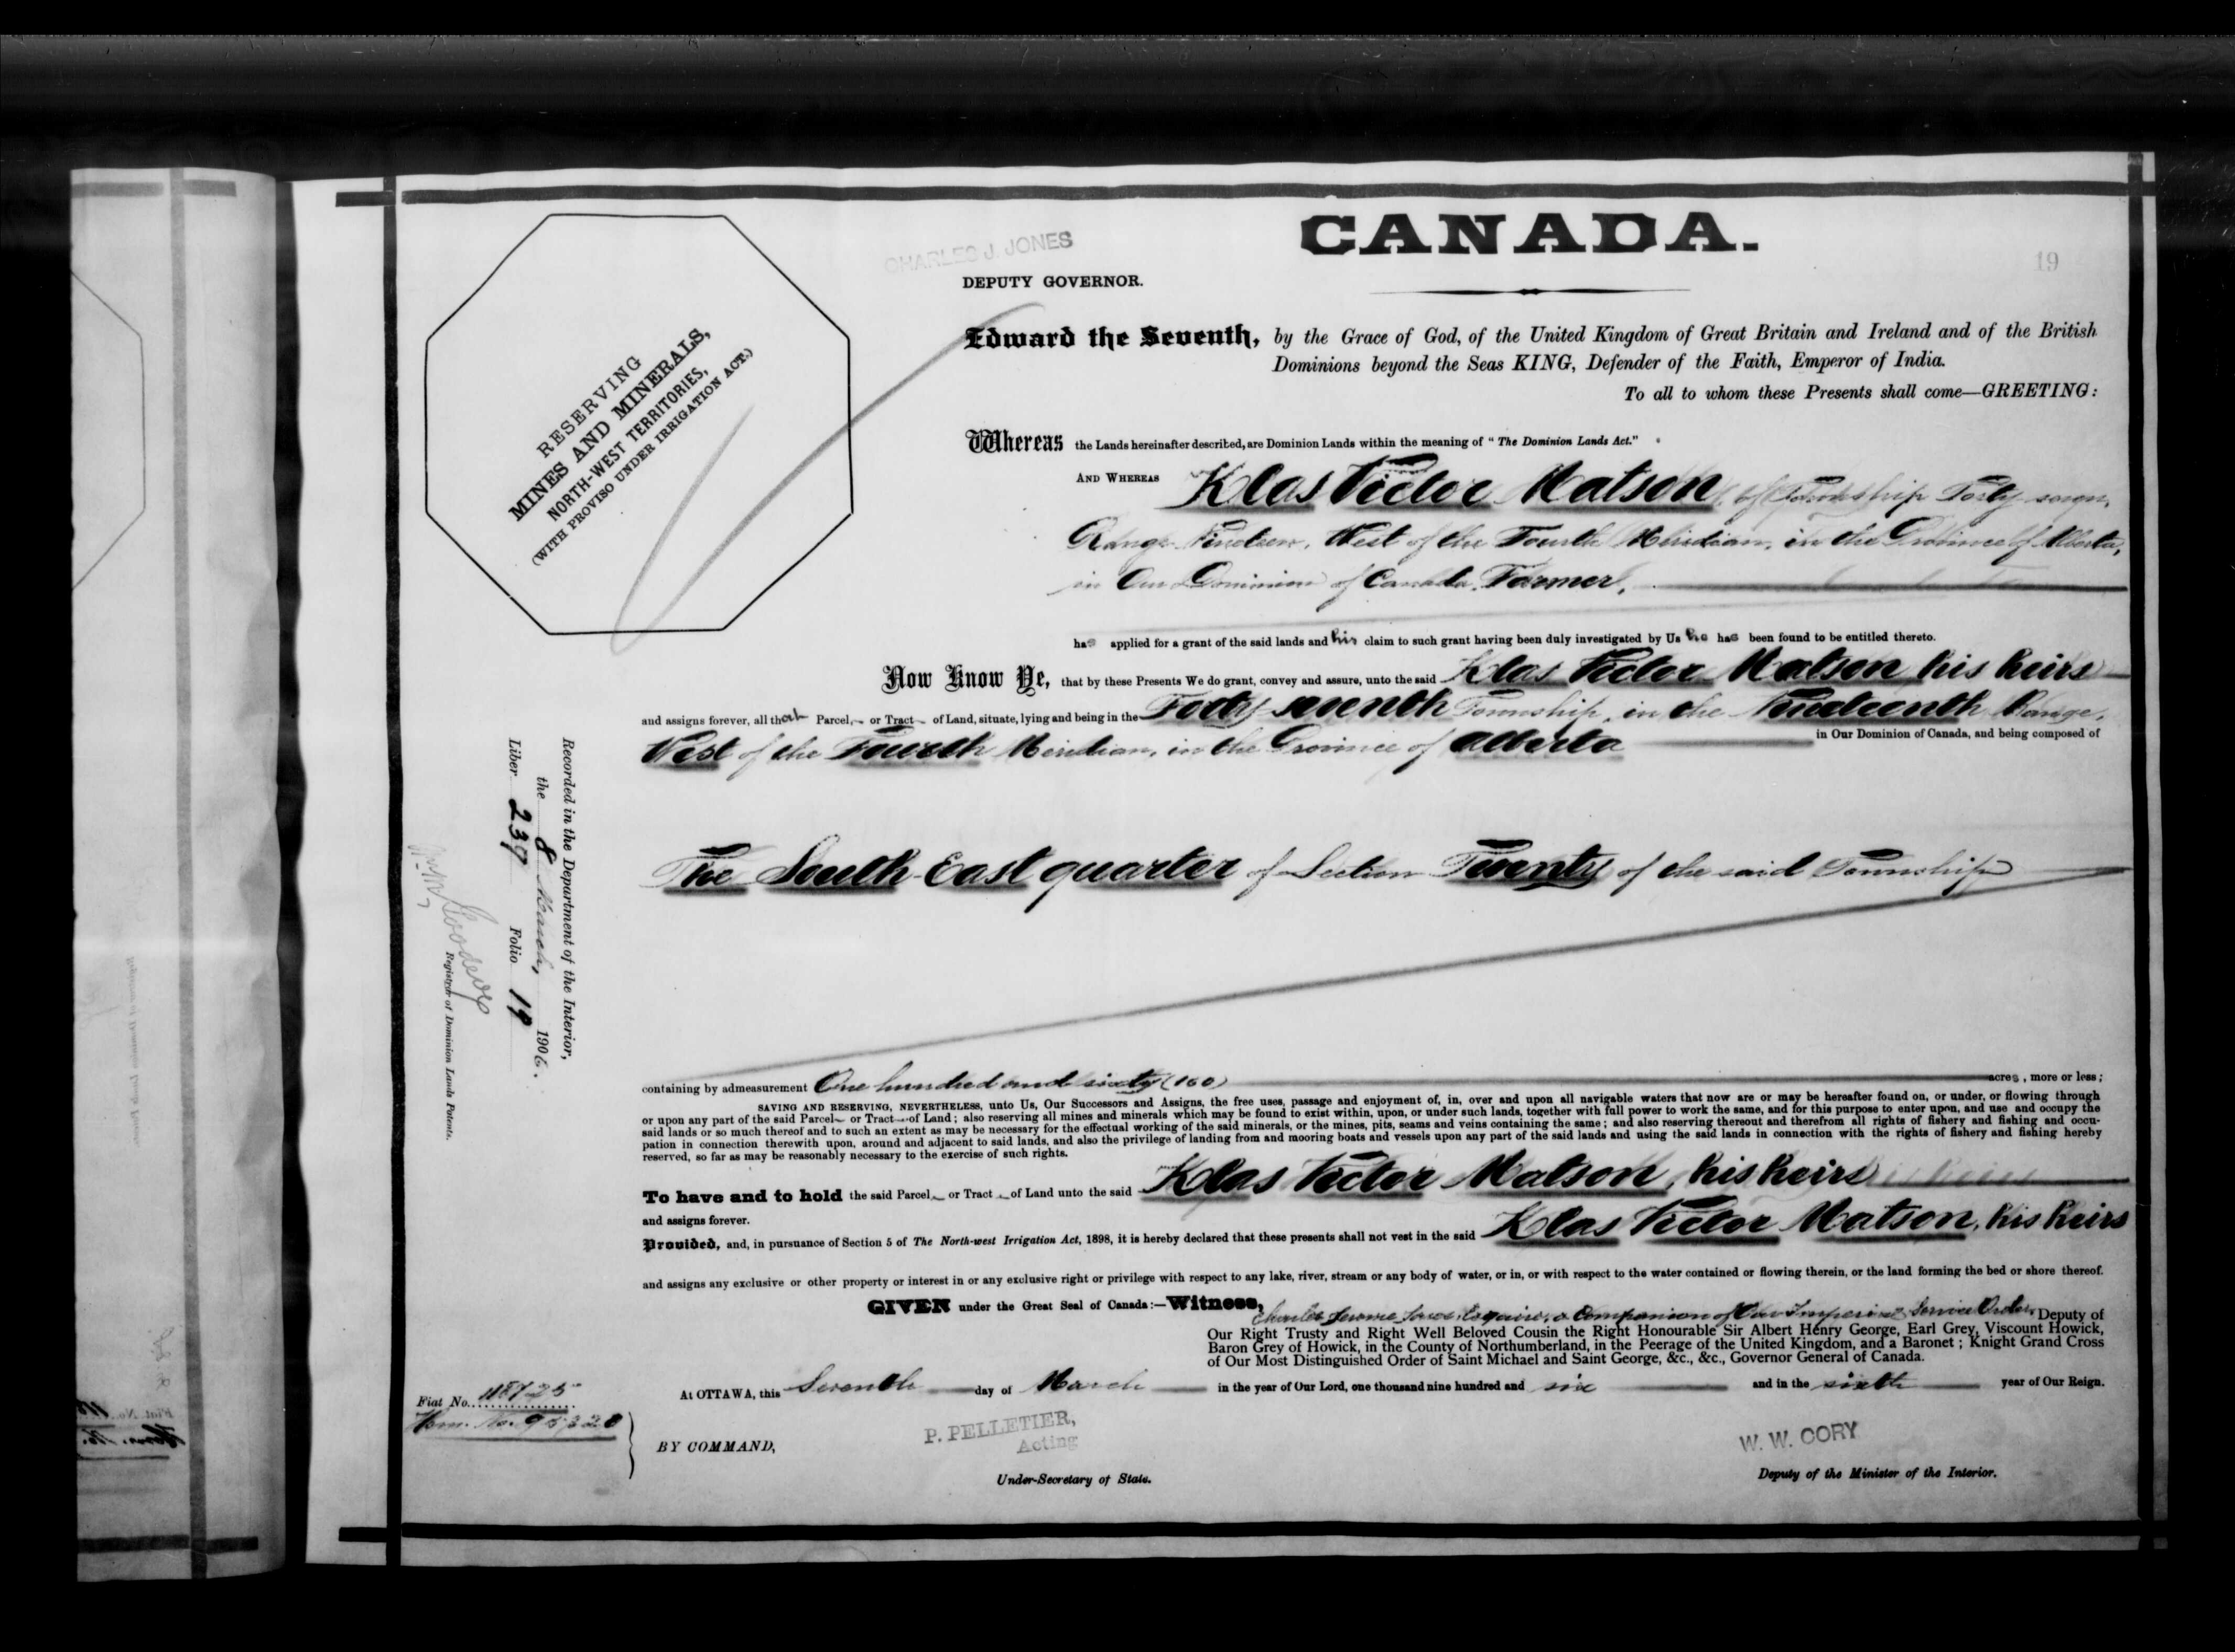 CANADA.
CHARLES J. JONES
DEPUTY GOVERNOR.
19
RESERVING
MINES AND MINERALS,
NORTH-WEST TERRITORIES,
(WITH PROVISO UNDER IRRIGATION ACT.)
Edward the Seventh, by the Grace of God, of the United Kingdom of Great Britain and Ireland and of the British
Dominions beyond the Seas KING, Defender of the Faith, Emperor of India.
To all to whom these Presents shall come—GREETING:
Whereas the Lands hereinafter described, are Dominion Lands within the meaning of "The Dominion Lands Act."
AND WHEREAS Klas Victor Matson, of Township Forty-seven,
Range Nineteen, West of the Fourth Meridian, in the Province of Alberta,
in Our Dominion of Canada, Farmer,
has applied for a grant of the said lands and his claim to such grant having been duly investigated by Us he has been found to be entitled thereto.
Now Know Ye, that by these Presents We do grant, convey and assure, unto the said Klas Victor Matson his heirs
and assigns forever, all that Parcel or Tract of Land, situate, lying and being in the Forty-seventh Township, in the Nineteenth Range,
West of the Fourth Meridian, in the Province of Alberta in Our Dominion of Canada, and being composed of
The South-East quarter of Section Twenty of the said Township
containing by admeasurement One hundred and sixty (160) acres, more or less;
SAVING AND RESERVING, NEVERTHELESS, unto Us, Our Successors and Assigns, the free uses, passage and enjoyment of, in, over and upon all navigable waters that now are or may be hereafter found on, or under, or flowing through
or upon any part of the said Parcel or Tract of Land; also reserving all mines and minerals which may be found to exist within, upon, or under such lands, together with full power to work the same, and for this purpose to enter upon, and use and occupy the
said lands or so much thereof and to such an extent as may be necessary for the effectual working of the said minerals, or the mines, pits, seams and veins containing the same; and also reserving thereout and therefrom all rights of fishery and fishing and occu-
pation in connection therewith upon, around and adjacent to said lands, and also the privilege of landing from and mooring boats and vessels upon any part of the said lands and using the said lands in connection with the rights of fishery and fishing hereby
reserved, so far as may be reasonably necessary to the exercise of such rights.
To have and to hold the said Parcel or Tract of Land unto the said Klas Victor Matson, his heirs
and assigns forever.
Provided, and, in pursuance of Section 5 of The North-west Irrigation Act, 1898, it is hereby declared that these presents shall not vest in the said Klas Victor Matson, his heirs
and assigns any exclusive or other property or interest in or any exclusive right or privilege with respect to any lake, river, stream or any body of water, or in, or with respect to the water contained or flowing therein, or the land forming the bed or shore thereof.
GIVEN under the Great Seal of Canada:—Witness,
Charles Jerome Jones, Esquire, a Companion of Our Imperial Service Order, Deputy of
Our Right Trusty and Right Well Beloved Cousin the Right Honourable Sir Albert Henry George, Earl Grey, Viscount Howick,
Baron Grey of Howick, in the County of Northumberland, in the Peerage of the United Kingdom, and a Baronet; Knight Grand Cross
of Our Most Distinguished Order of Saint Michael and Saint George, &c., &c., Governor General of Canada.
At OTTAWA, this Seventh day of March in the year of Our Lord, one thousand nine hundred and six and in the sixth year of Our Reign.
Fiat No.
Hom. No. 95320
BY COMMAND,
P. PELLETIER,
Acting
Under-Secretary of State.
W. W. CORY
Deputy of the Minister of the Interior.
Recorded in the Department of the Interior,
the 8 March, 1906.
Liber 237 Folio 19
Registrar of Dominion Lands Patents.